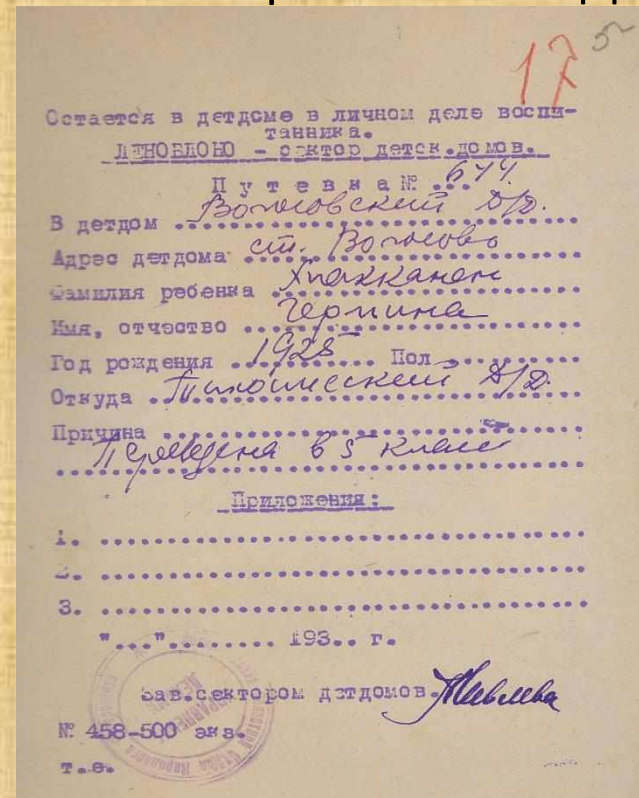 17
Остается в детдоме в личном деле воспи-
танника.
ЛЕНОБЛОНО - сектор детск.домов.
Путевка № 674.
В детдом Волосовский Д/Д.
Адрес детдома ст. Волосово
Фамилия ребенка
Имя, отчество
Год рождения 1925 Пол
Откуда Д/Д.
Причина
Переведена в 5 класс
Приложения:
1.
2.
3.
"..." 193.. г.
Зав.сектором детдомов.
№ 458-500 экз.
т.о.